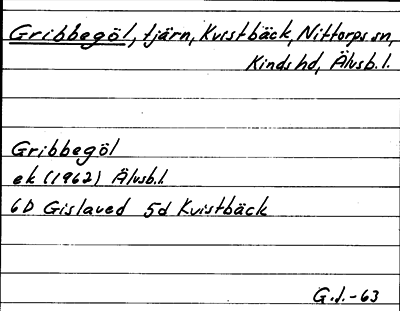 Gribbegöl, tjärn, Kvistbäck, Nittorps sn,
Kinds hd, Älvsb. l.
Gribbegöl
ek (1962) Älvsb.l.
6D Gislaved 5d Kvistbäck
G.J.-63